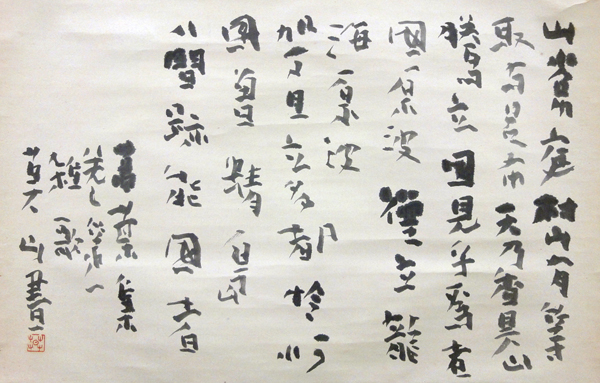 山常庭村山有等
取与呂布天乃香具山
騰立国見乎為者
國原波煙立籠
海原波
加万目立多都怜
國曽蜻嶋
八間跡能國者
萬葉集
巻之第一
雑歌